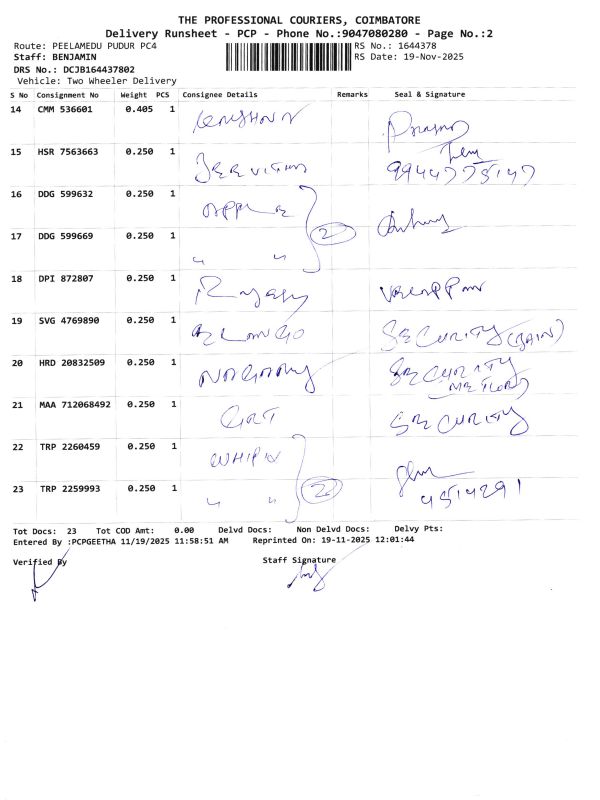 THE PROFESSIONAL COURIERS, COIMBATORE
Delivery Runsheet - PCP - Phone No.:9047080280 - Page No.:2
Route: PEELAMEDU PUDUR PC4 RS No.: 1644378
Staff: BENJAMIN RS Date: 19-Nov-2025
DRS No.: DCJB164437802
Vehicle: Two Wheeler Delivery
S No Consignment No Weight PCS Consignee Details Remarks Seal & Signature
14 CMM 536601 0.405 1
15 HSR 7563663 0.250 1
16 DDG 599632 0.250 1 APPLE
17 DDG 599669 0.250 1 " " 2
18 DPI 872807 0.250 1
19 SVG 4769890 0.250 1 SECURITY
20 HRD 20832509 0.250 1 SECURITY
21 MAA 712068492 0.250 1 GRT SECURITY
22 TRP 2260459 0.250 1
23 TRP 2259993 0.250 1 " " 2 4514291
Tot Docs: 23 Tot COD Amt: 0.00 Delvd Docs: Non Delvd Docs: Delvy Pts:
Entered By :PCPGEETHA 11/19/2025 11:58:51 AM Reprinted On: 19-11-2025 12:01:44
Verified By Staff Signature